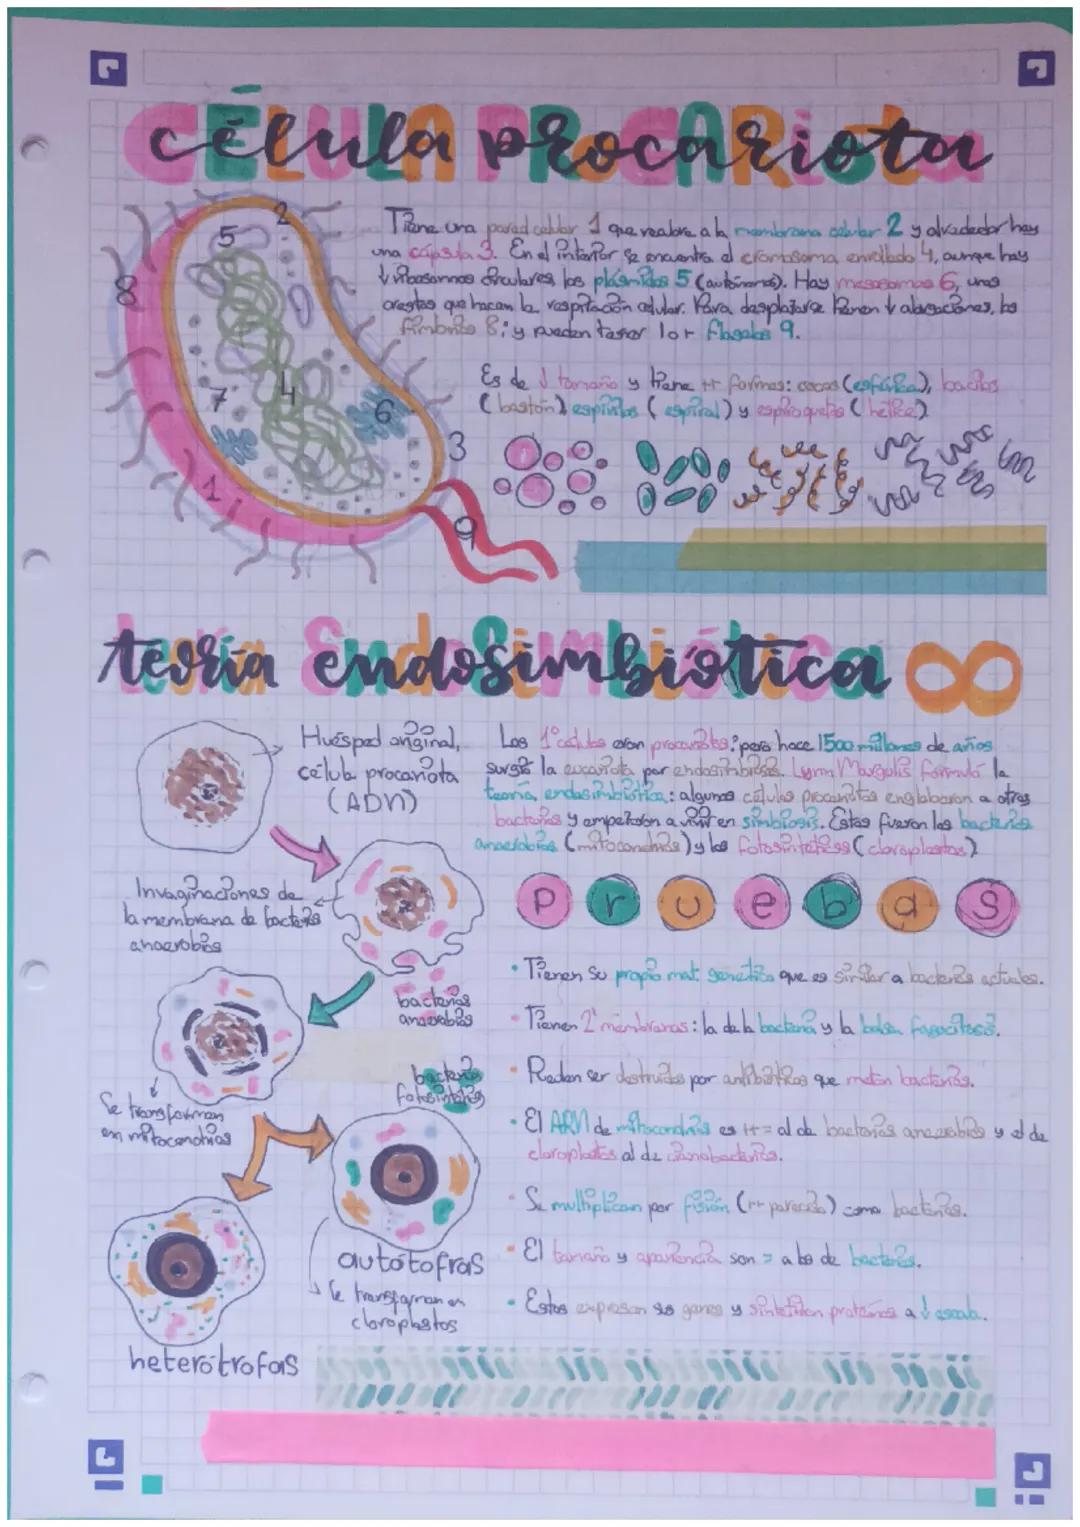 célula procariota
Tiene una pared celular 1 que recubre a la membrana celular 2 y alrededor hay
una cápsula 3. En el interior se encuentra el cromosoma enrollado 4, aunque hay
↓ ribosomas circulares, los plásmidos 5 (autónomos). Hay mesosomas 6, unas
crestas que hacen la respiración celular. Para desplazarse tienen ↓ alargaciones, los
fimbrias 8; y pueden tener 1 o + flagelos 9.
Es de ↓ tamaño y tiene ++ formas: cocos (esférica), bacilos
(bastón), espirilos (espiral) y espiroquetas (hélice)
2
5
8
7
4
6
3
1
9
teoría endosimbiótica
Huésped original,
célula procariota
(ADN)
Las 1º células eran procariotas, pero hace 1500 millones de años
surgió la eucariota por endosimbiosis. Lynn Margulis formuló la
teoría endosimbiótica: algunas células procariotas englobaron a otras
bacterias y empezaron a vivir en simbiosis. Estas fueron las bacterias
anaerobias (mitocondrias) y las fotosintéticas (cloroplastos)
Invaginaciones de
la membrana de bacterias
anaerobias
pruebas
bacterias
anaerobias
• Tienen su propio mat. genético que es similar a bacterias actuales.
• Tienen 2 membranas: la de la bacteria y la bolsa fagocitosis.
bacterias
• Pueden ser destruidos por antibióticos que matan bacterias.
Se transforman
en mitocondrias
• El ARN de mitocondrias es ++ = al de bacterias anaerobias y el de
cloroplastos al de cianobacterias.
• Se multiplican por fisión (++ parecida) como bacterias.
autótofras
• El tamaño y apariencia son = a los de bacterias.
Se transforman en
cloroplastos
• Estos expresan sus genes y sintetizan proteínas a ↓ escala.
heterótrofas